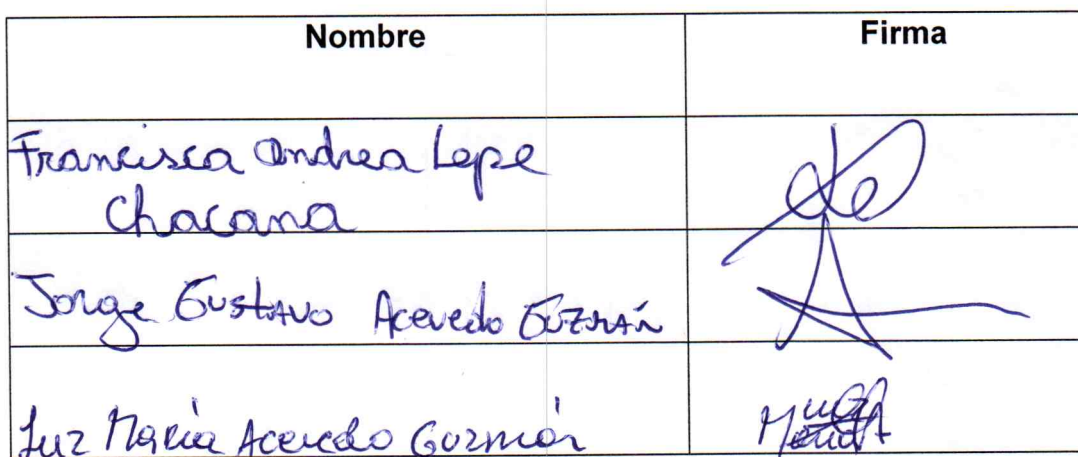 Nombre Firma
Francisca Andrea Lepe
Chacana
Jorge Gustavo Acevedo Guzmán
Luz María Acevedo Guzmán